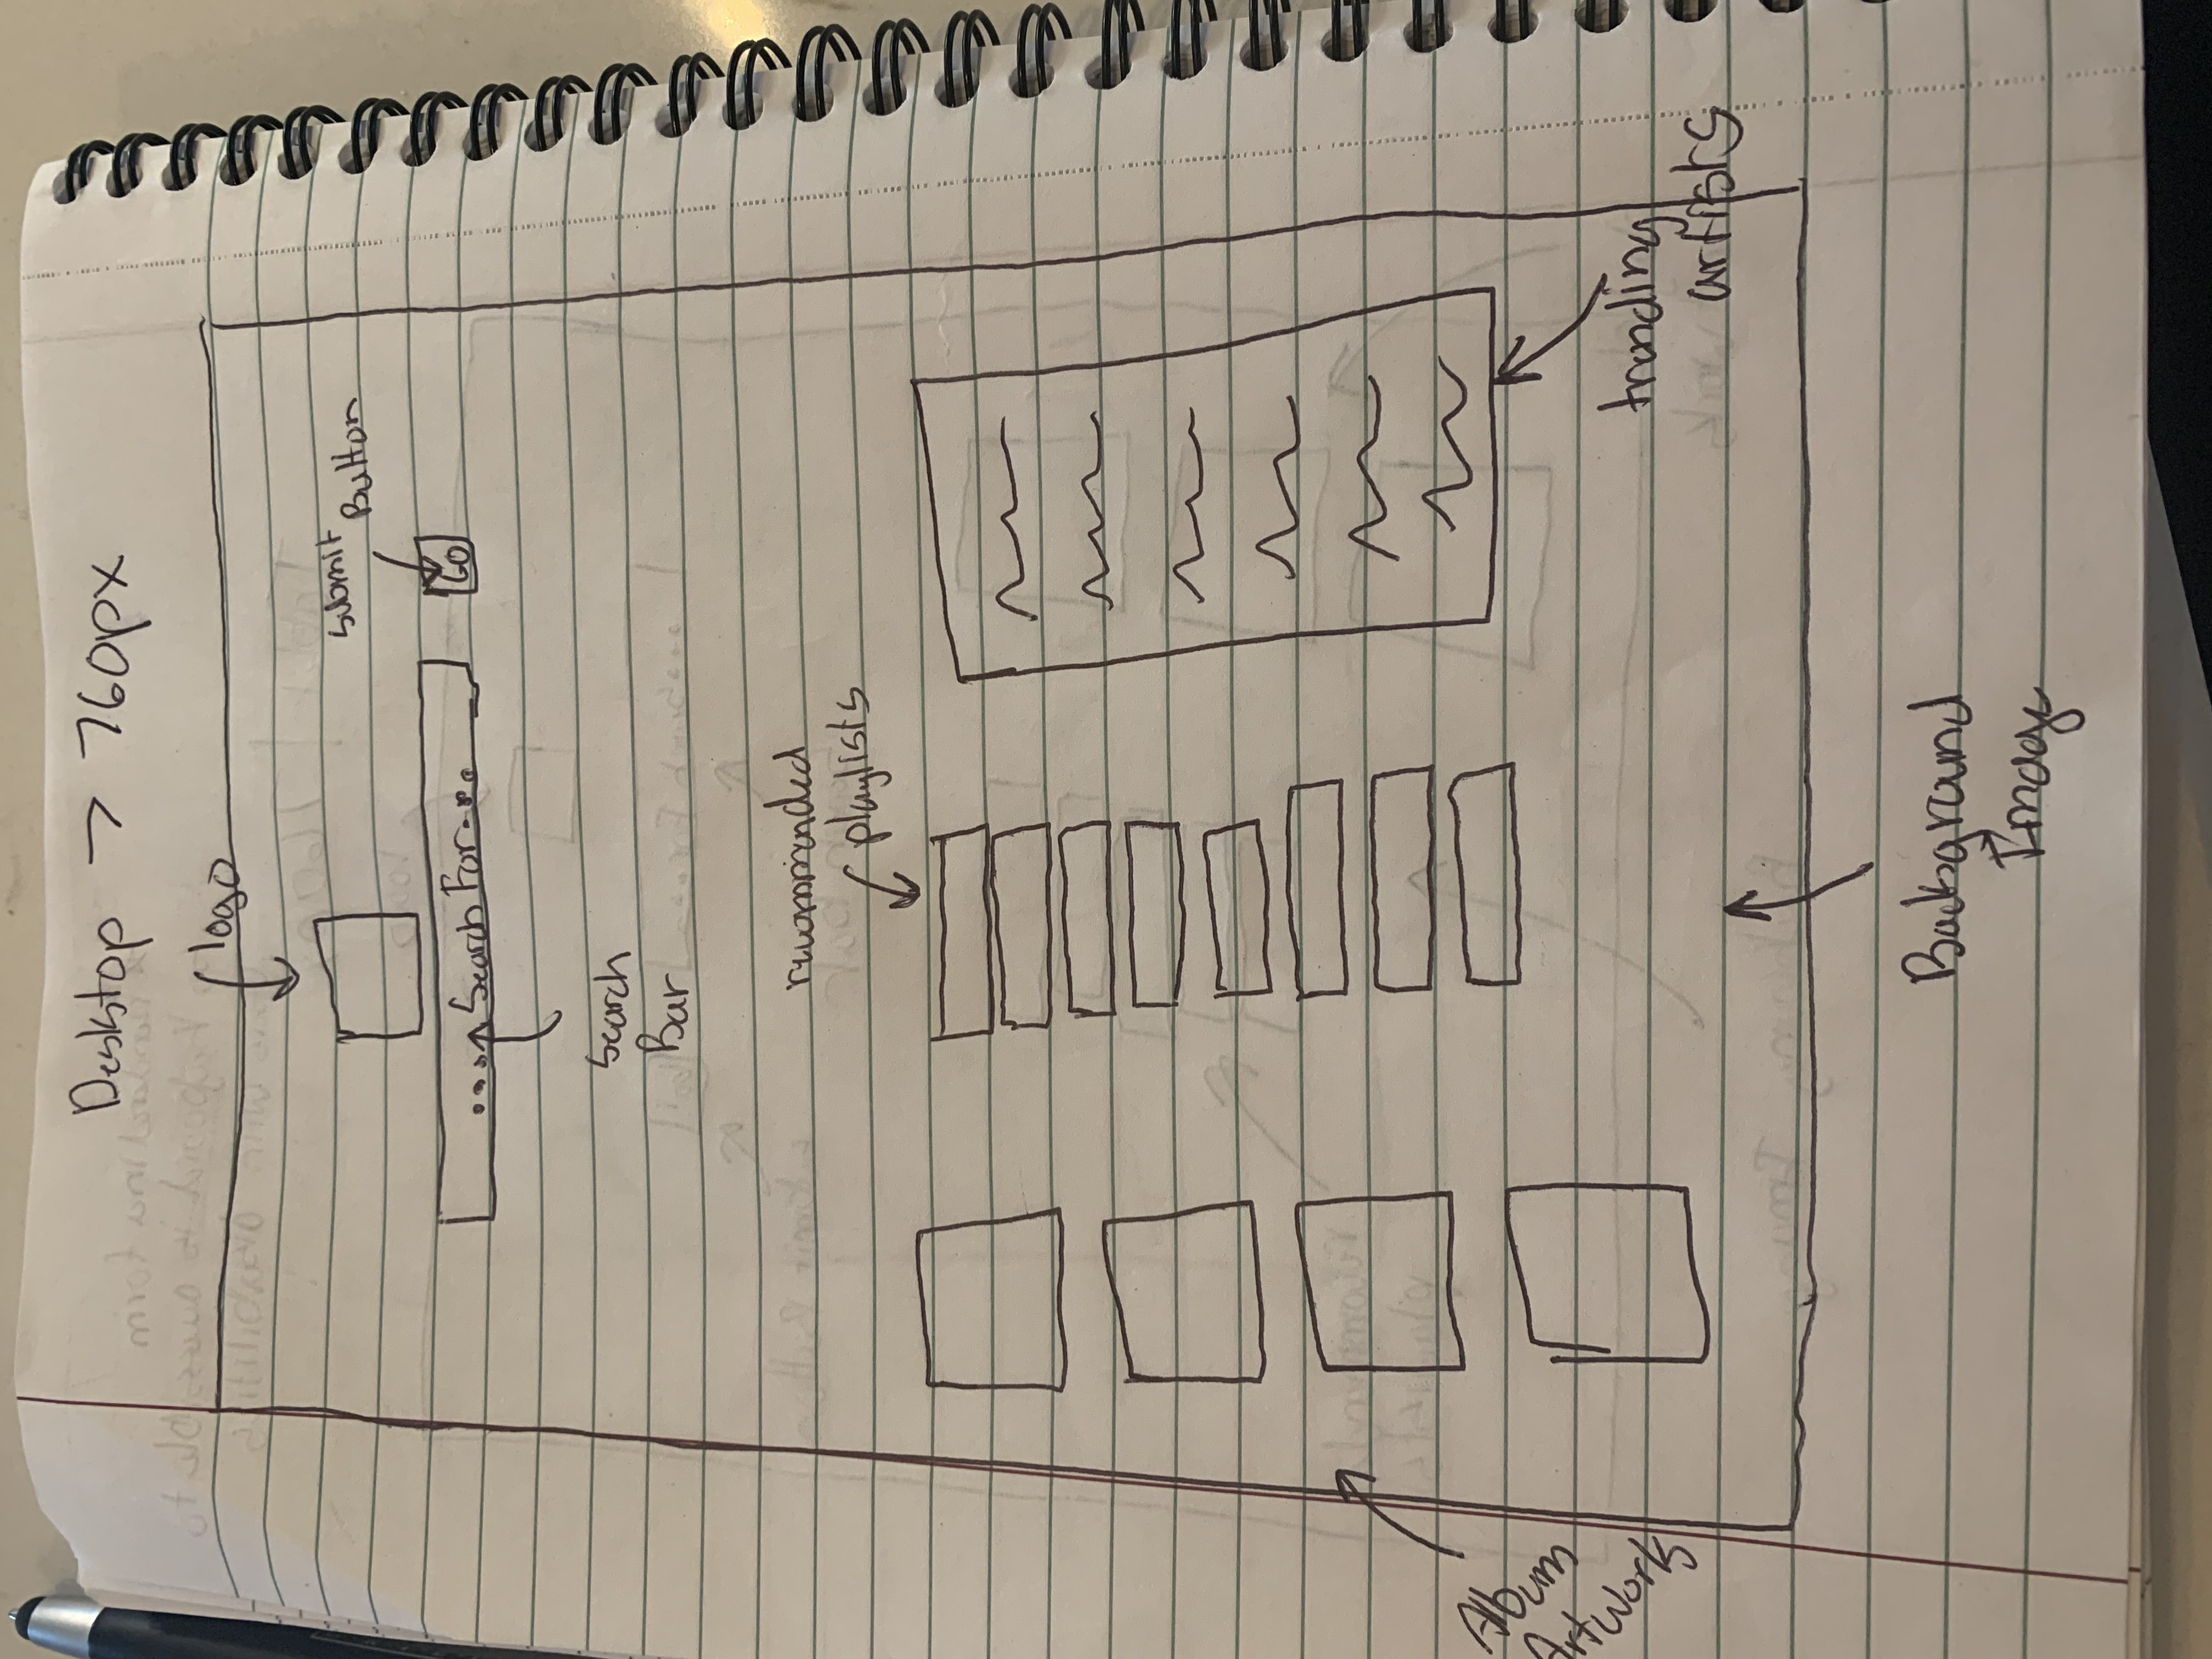 Desktop > 760px
logo
Submit Button
.... Search For....
GO
Search
Bar
recommended
playlists
Album
Artwork
trending
artists
Background
Image